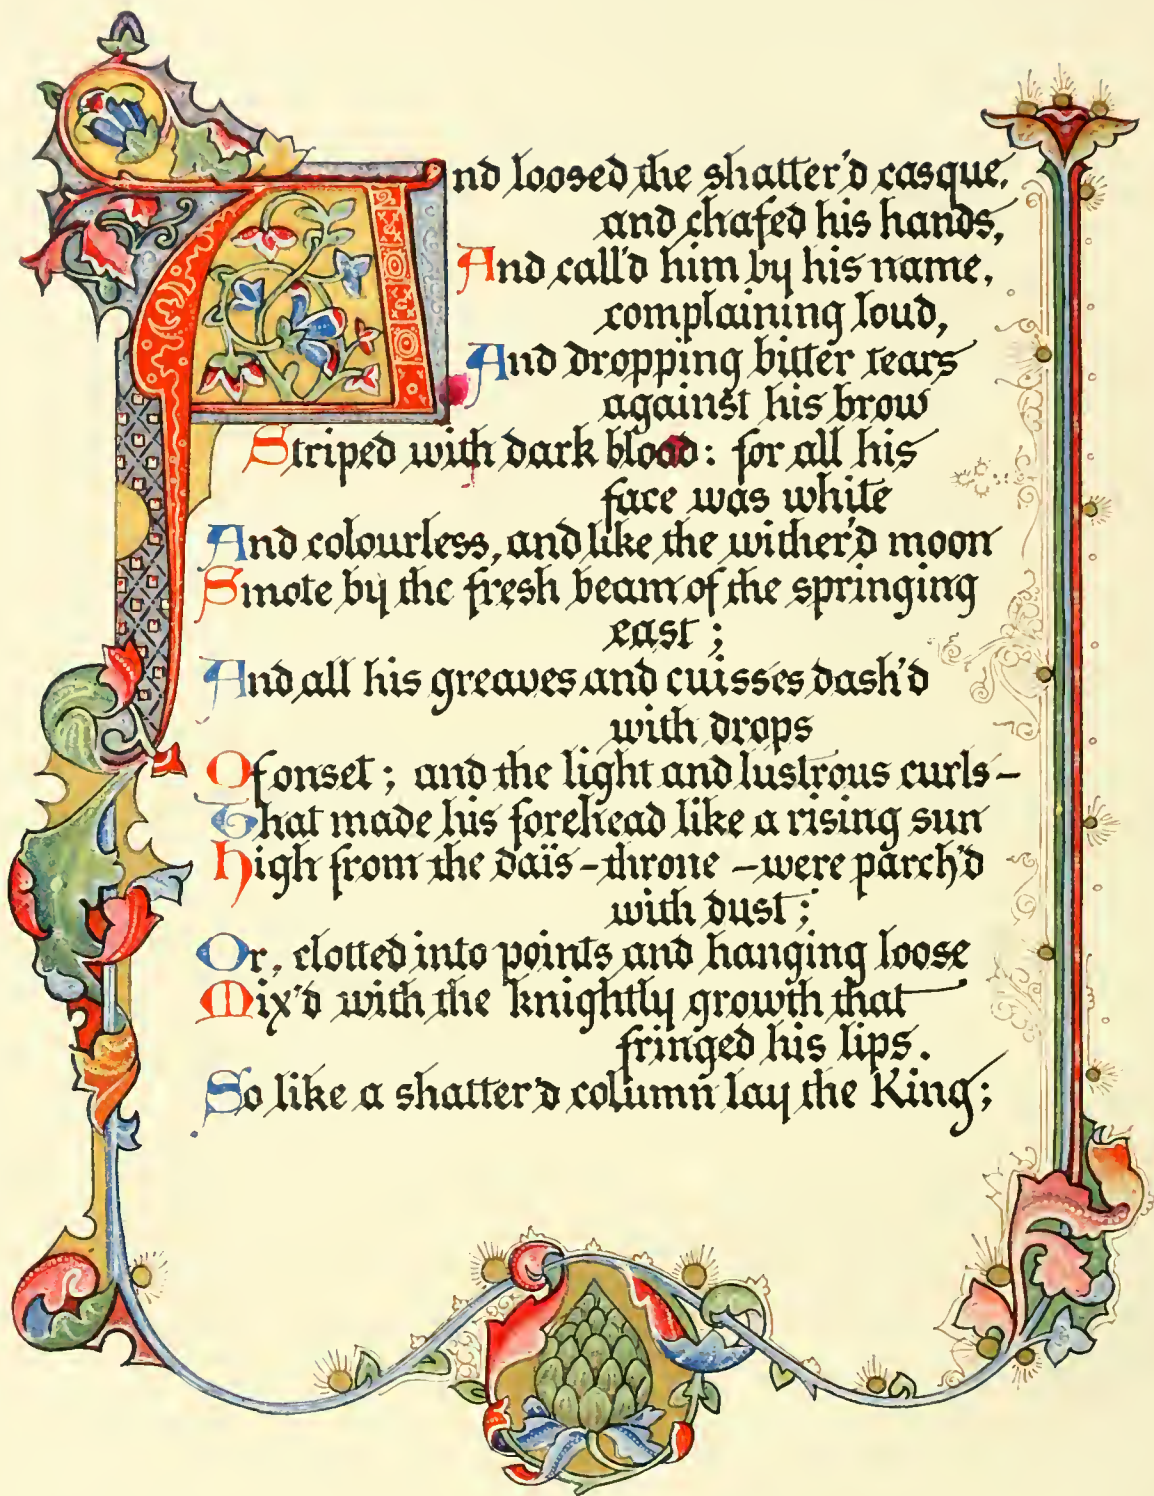 And loosed the shatter'd casque,
and chafed his hands,
And call'd him by his name,
complaining loud,
And dropping bitter tears
against his brow
Striped with dark blood: for all his
face was white
And colourless, and like the wither'd moon
Smote by the fresh beam of the springing
east;
And all his greaves and cuisses dash'd
with drops
Of onset; and the light and lustrous curls–
That made his forehead like a rising sun
High from the daïs–throne–were parch'd
with dust;
Or, clotted into points and hanging loose
Mix'd with the knightly growth that
fringed his lips.
So like a shatter'd column lay the King;